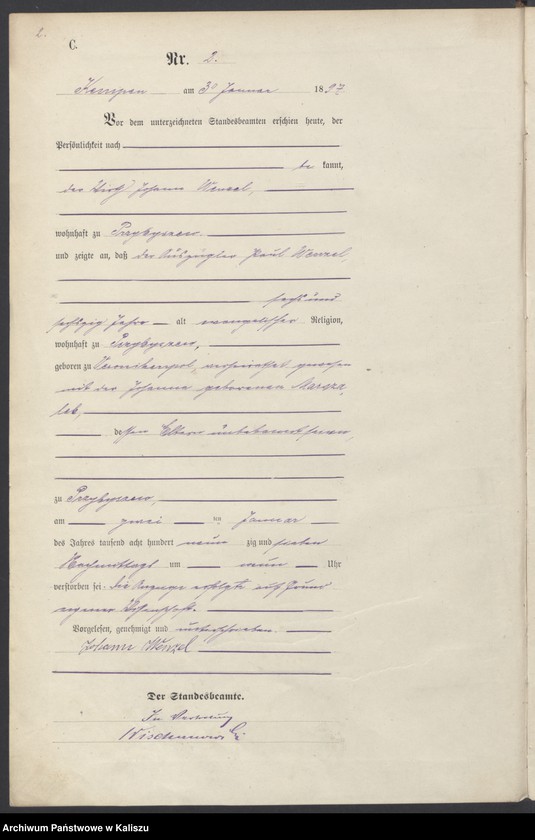 2.
C.
Nr. 2.
Kempen am 3ⁿ Januar 1897
Vor dem unterzeichneten Standesbeamten erschien heute, der
Persönlichkeit nach
be kannt,
der Wirth Johann Wenzel,
wohnhaft zu Przybyszew.
und zeigte an, daß der Auszügler Paul Wenzel,
sechs und
sechszig Jahre alt evangelischer Religion,
wohnhaft zu Przybyszew,
geboren zu verheirathet gewesen
mit der Johanna geborenen Marsza
lek,
dessen Eltern unbekannt seien,
zu Przybyszew,
am zwei ten Januar
des Jahres tausend acht hundert neun zig und sieben
Nachmittags um neun Uhr
verstorben sei. Die Anzeige erfolgte auf Grund
eigener Wissenschaft.
Vorgelesen, genehmigt und unterschrieben.
Johann Wenzel
Der Standesbeamte.
In Vertretung
Archiwum Państwowe w Kaliszu